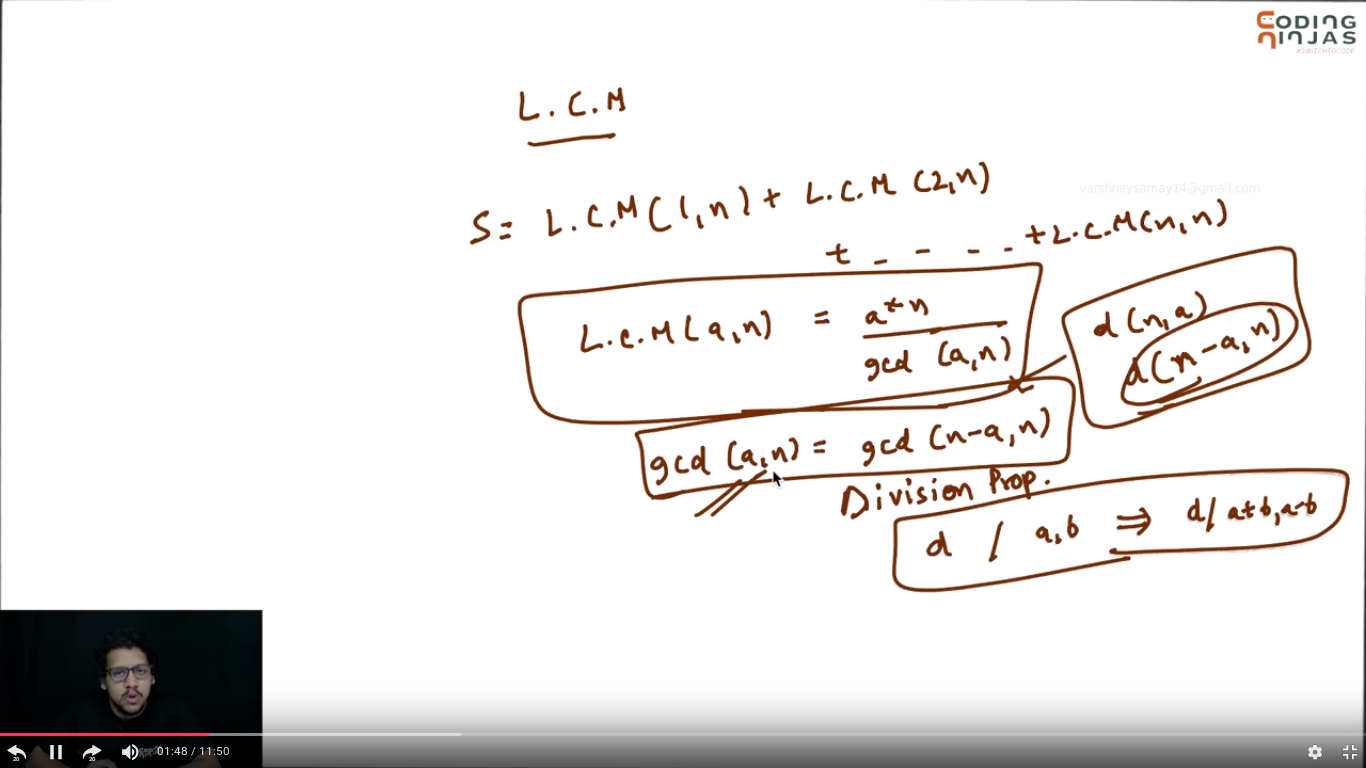 CODING
NINJAS
#SWITCHTOCODE
L.C.M
varshneysamay14@gmail.com
S= L.C.M(1,n) + L.C.M (2,n)
+ _ _ _ _ +L.C.M(n,n)
L.C.M(a,n) = a*n
gcd (a,n)
d(n,a)
d(n-a,n)
gcd (a,n) = gcd (n-a,n)
Division Prop.
d / a,b ⇒ d/a+b,a-b
20 20 01:48 / 11:50